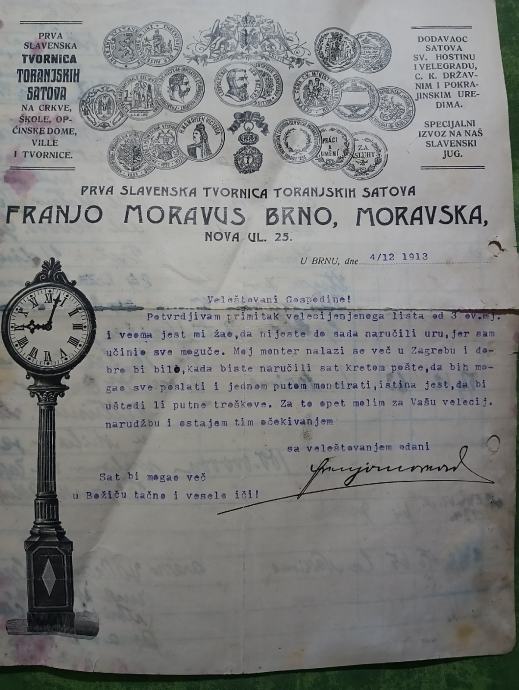 PRVA
SLAVENSKA
TVORNICA
TORANJSKIH
SATOVA
NA CRKVE,
ŠKOLE, OP-
ĆINSKE DOME,
VILLE
I TVORNICE.
DODAVAOC
SATOVA
SV. HOSTINU
I VELEGRADU,
C. K. DRŽAV-
NIM I POKRA-
JINSKIM URE-
DIMA.
SPECIJALNI
IZVOZ NA NAŠ
SLAVENSKI
JUG.
PRÁCI
A
UMĚNÍ
ZA
PRVA SLAVENSKA TVORNICA TORANJSKIH SATOVA
FRANJO MORAVUS BRNO, MORAVSKA,
NOVA UL. 25.
U BRNU, dne 4/12 1913
Veleštovani Gospodine!
Potvrdjivam primitak velecijenjenega lista od 3 ov.mj.
i veoma jest mi žao,da nijeste do sada naručili uru,jer sam
učinio sve moguće. Moj monter nalazi se več u Zagrebu i do-
bro bi bilo,kada biste naručili sat kretom pošte,da bih mo-
gao sve poslati i jednom putom montirati,istina jest,da bi
uštedi li putne troškove. Za to opet molim za Vašu velecij.
narudžbu i ostajem tim očekivanjem
sa veleštovanjem odani
Sat bi mogao več
u Božiču tačno i veselo iči!